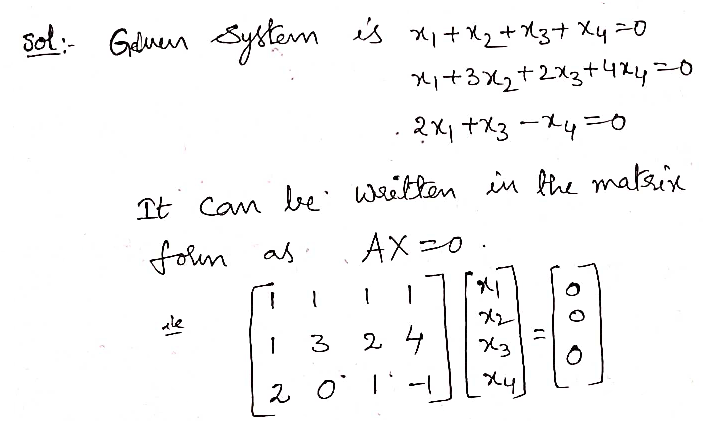 Sol:- Given System is x₁+x₂+x₃+x₄=0
x₁+3x₂+2x₃+4x₄=0
2x₁+x₃-x₄=0
It can be written in the matrix
form as AX=0.
ie [1 1 1 1; 1 3 2 4; 2 0 1 -1] [x₁; x₂; x₃; x₄] = [0; 0; 0]